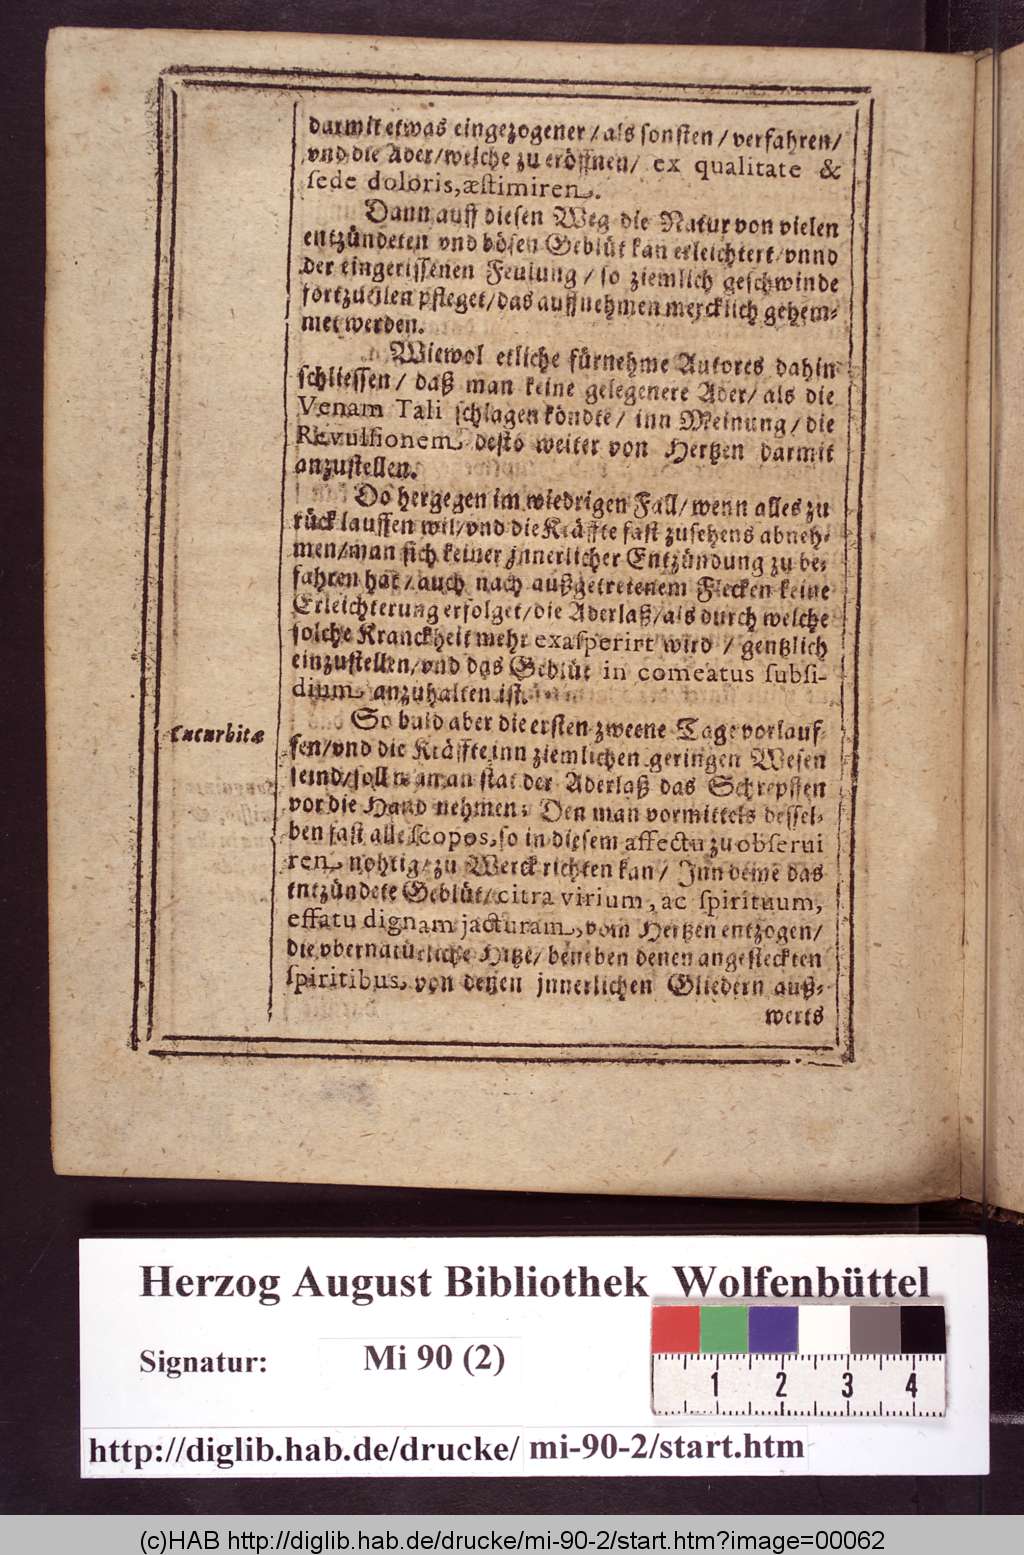 darmit etwas eingezogener / als sonsten / verfahren /
vnd die Ader / welche zu eröffnen / ex qualitate &
sede doloris, æstimiren.
Dann auff diesen Weg die Natur von vielen
entzündeten vnd bösen Geblüt kan erleichtert / vnnd
der eingerissenen Feulung / so ziemlich geschwinde
fortzueilen pfleget / das auffnehmen mercklich gehem-
met werden.
Wiewol etliche fürnehme Autores dahin
schliessen / daß man keine gelegenere Ader / als die
Venam Tali schlagen köndte / inn Meinung / die
Revulsionem desto weiter von Hertzen darmit
anzustellen.
Do hergegen im wiedrigen Fall / wenn alles zu
rück lauffen wil / vnd die Kräffte fast zusehens abneh-
men / man sich keiner jnnerlicher Entzündung zu be-
fahren hat / auch nach außgetretenem Flecken keine
Erleichterung erfolget / die Aderlaß / als durch welche
solche Kranckheit mehr exasperirt wird / gentzlich
einzustellen / vnd das Geblüt in comeatus subsi-
dium anzuhalten ist.
Cucurbitæ
So bald aber die ersten zweene Tage vorlauf-
fen / vnd die Kräffte inn ziemlichen geringen Wesen
seind / soll man an stat der Aderlaß das Schrepffen
vor die Hand nehmen. Den man vormittels dessel-
ben fast alle scopos, so in diesem affectu zu obserui
ren nohtig / zu Werck richten kan / Jnn deme das
entzündete Geblüt / citra virium, ac spirituum,
effatu dignam jacturam, vom Hertzen entzogen /
die vbernatürliche Hitze / beneben denen angesteckten
spiritibus von denen jnnerlichen Gliedern auß-
werts
Herzog August Bibliothek Wolfenbüttel
Signatur: Mi 90 (2)
1 2 3 4
http://diglib.hab.de/drucke/ mi-90-2/start.htm
(c)HAB http://diglib.hab.de/drucke/mi-90-2/start.htm?image=00062